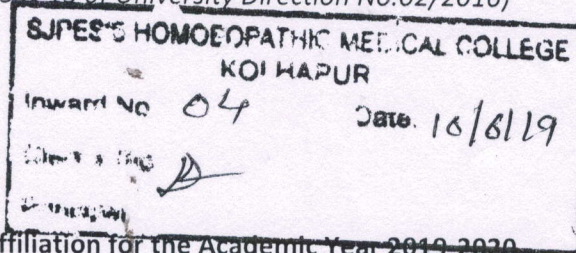 University Direction No.02/2016)
SJPES'S HOMOEOPATHIC MEDICAL COLLEGE
KOLHAPUR
Inward No 04 Date. 16/6/19
Principal
ffiliation for the Academic Year 2019-2020